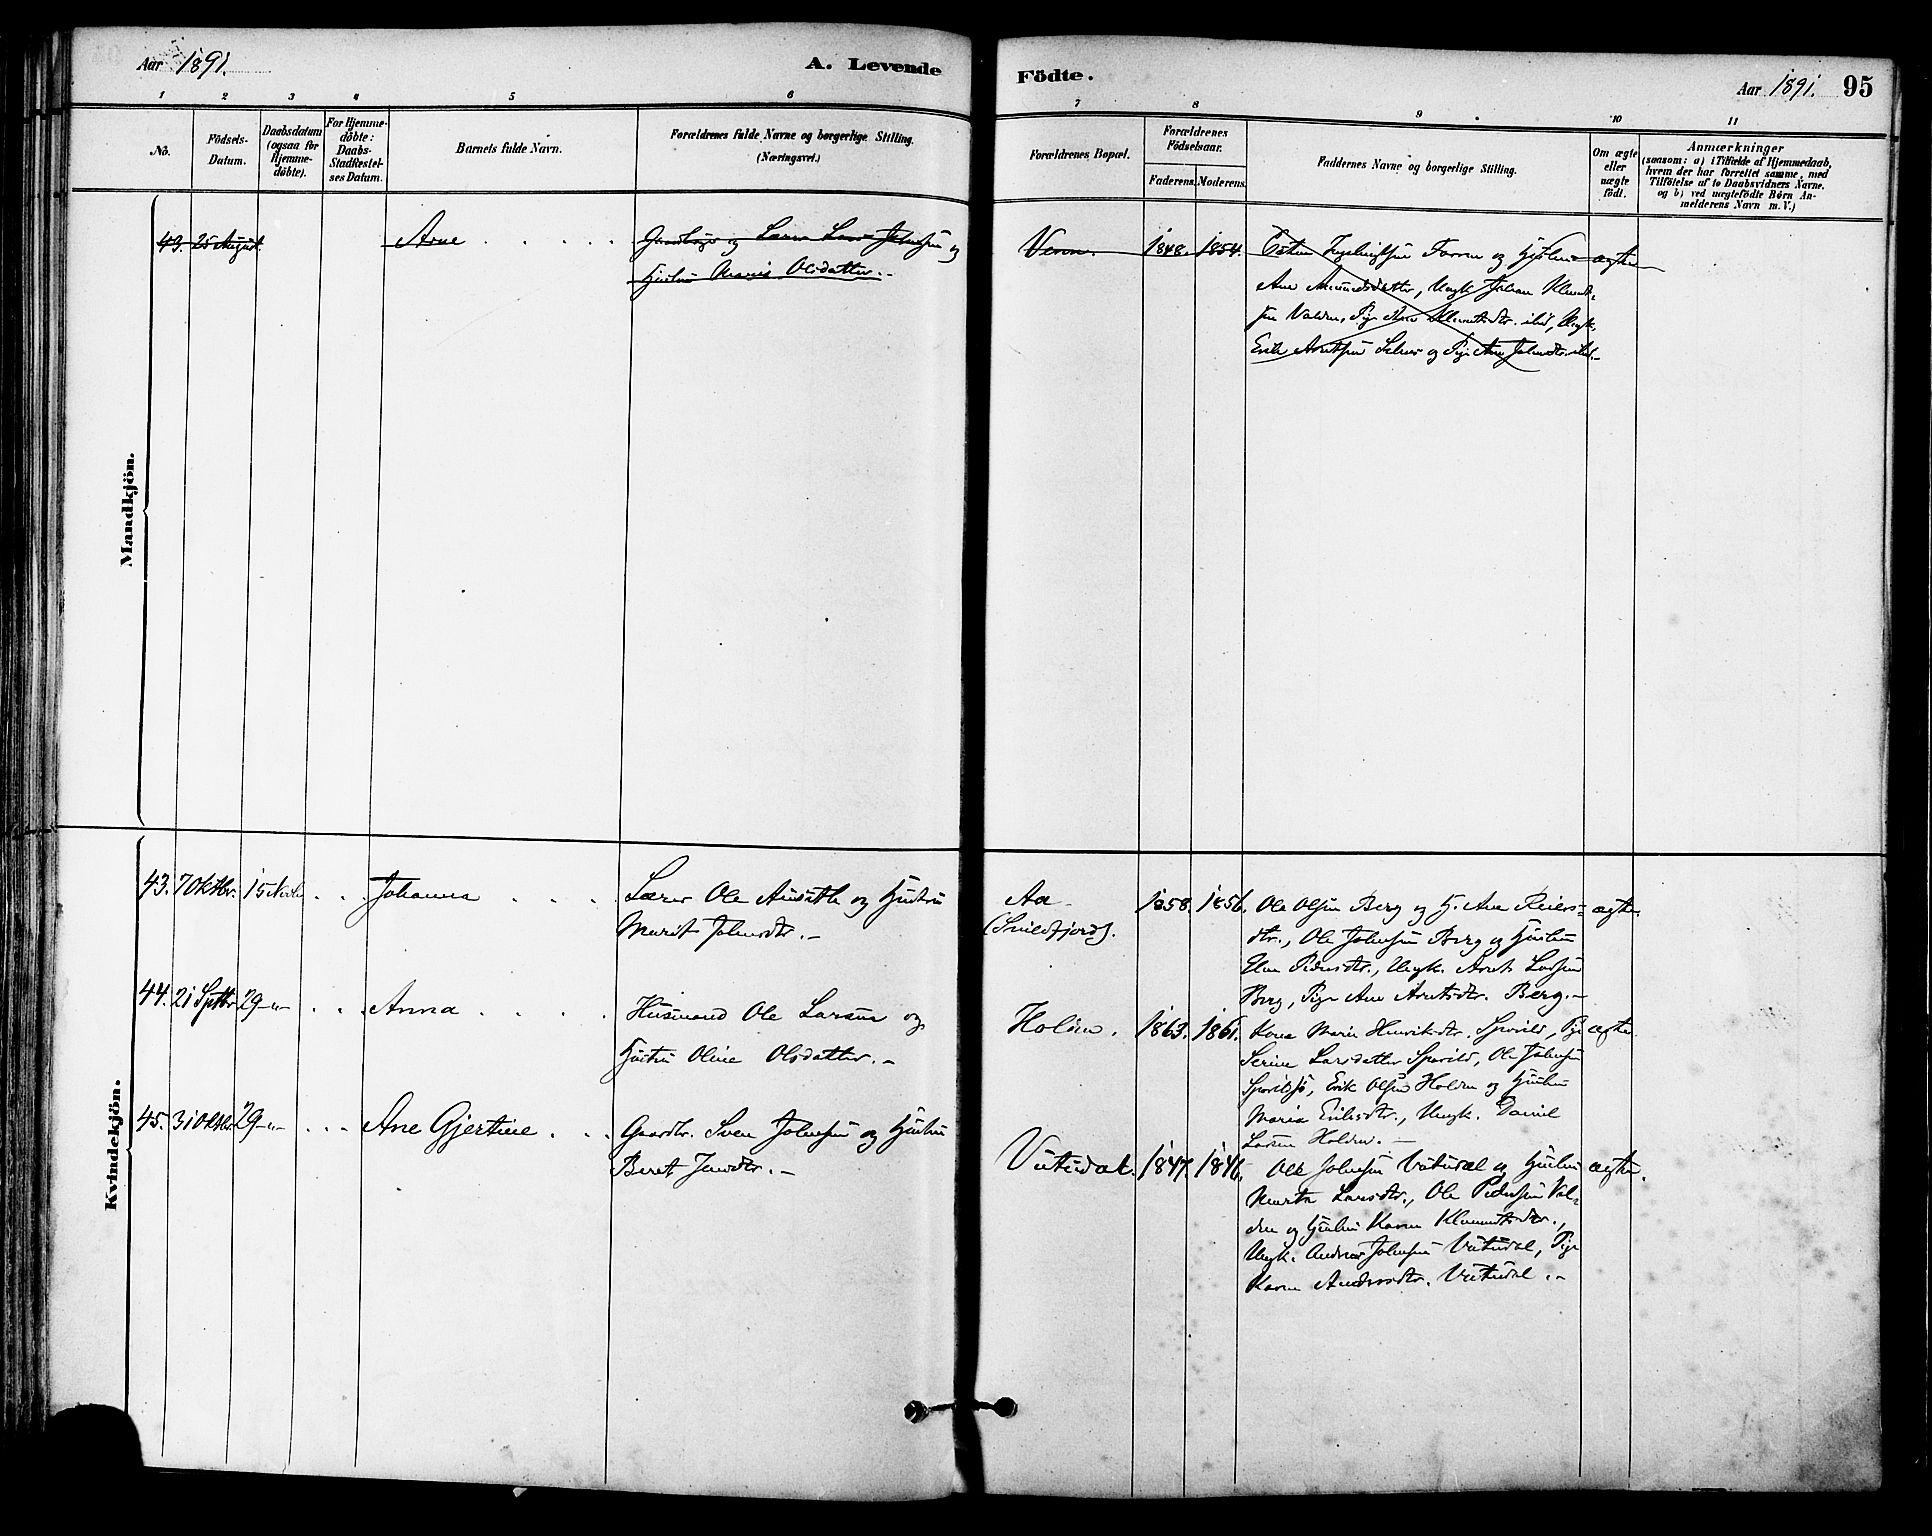 Aar 1891.
A. Levende
Födte.
Aar 1891. 95
1 2 3 4 5 6 7 8 9 10 11
No.
Födsels-
Datum.
Daabsdatum
(ogsaa for
Hjemme-
döbte).
For Hjemme-
döbte:
Daabs-
Stadfæstel-
ses Datum.
Barnets fulde Navn.
Forældrenes fulde Navne og borgerlige Stilling.
(Næringsvei.)
Forældrenes Bopæl.
Forældrenes
Födselsaar.
Faderens. Moderens.
Faddernes Navne og borgerlige Stilling.
Om ægte
eller
uægte
födt.
Anmærkninger
(saasom: a) i Tilfælde af Hjemmedaab,
hvem der har forrettet samme, med
Tilföielse af to Daabsvidners Navne,
og b) ved uægtefödte Börn An-
melderens Navn m. V.)
Mandkjön.
43. 25 August. Arne
Gaardbr. og Lærer Johnsen og
Hustru Marit Olsdatter.-
1848. 1854.
og Hustru ægte
Ane Amundsdatter, Ungk. Johan
Valden, Pige Ane
Erik og Pige Ane Johnsdtr.
Kvindekjön.
43. 7 Oktbr. 15 Novbr. Johanna
Lærer Ole og Hustru
Marit Johnsdtr.-
Aa
(Snildfjord).
1858. 1856.
Ole Olsen Berg og H. Ane Reiers-
dtr., Ole Johnsen Berg og Hustru
Elen Pedersdtr., Ungk. Arnt Larsen
Berg, Pige Ane Arntsdtr. Berg.-
ægte.
44. 21 Septbr. 29 -"- Anna
Husmand Ole Larsen og
Hustru Oline Olsdatter.-
Holden.
1863. 1861.
Kone Marie Henriksdtr. Sporild, Pige
Serine Larsdatter Sporild, Ole Johnsen
Erik Olsen Holden og Hustru
Maria Eriksdtr., Ungk. Daniel
Larsen Holden.-
ægte.
45. 31 Oktbr. 29 -"- Ane Gjertine
Gaardbr. Sven Johnsen og Hustru
Beret Jensdtr.-
Vutudal.
1847. 1846.
Ole Johnsen Vutudal og Hustru
Marit Larsdtr., Ole Pedersen Val-
den og Hustru Karen Klemetsdtr.,
Ungk. Andreas Johnsen Vutudal, Pige
Karen Andersdtr. Vutudal.-
ægte.